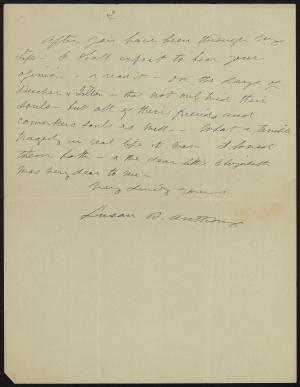 2
After you have been through my
- I shall expect to hear your
opinion - or read it - on the days of
Beecher & Tilton - that not only tried their
souls - but all of their friends and
coworkers souls as well - - What a terrible
tragedy in real life it was - I loved
them both - & the dear little Elizabeth
was very dear to me -
Very sincerely yours
Susan B. Anthony